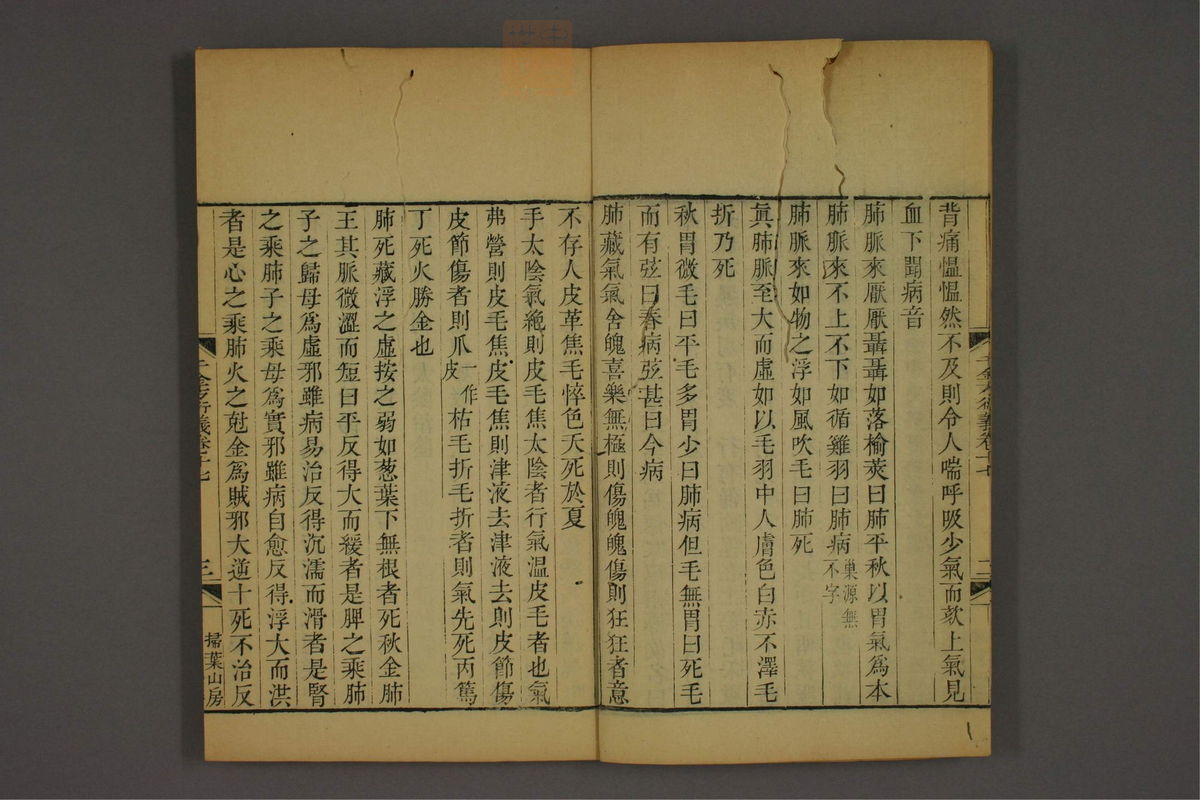 背痛慍慍然不及則令人喘呼吸少氣而欬上氣見
血下聞病音
肺脈來厭厭聶聶如落榆莢曰肺平秋以胃氣爲本
肺脈來不上不下如循雞羽曰肺病巢源無不字
肺脈來如物之浮如風吹毛曰肺死
眞肺脈至大而虛如以毛羽中人膚色白赤不澤毛
折乃死
秋胃微毛曰平毛多胃少曰肺病但毛無胃曰死毛
而有弦曰春病弦甚曰今病
肺藏氣氣舍魄喜樂無極則傷魄魄傷則狂狂者意
不存人皮革焦毛悴色夭死於夏
手太陰氣絶則皮毛焦太陰者行氣溫皮毛者也氣
弗營則皮毛焦皮毛焦則津液去津液去則皮節傷
皮節傷者則爪一作皮枯毛折毛折者則氣先死丙篤
丁死火勝金也
肺死藏浮之虛按之弱如葱葉下無根者死秋金肺
王其脈微澀而短曰平反得大而緩者是脾之乘肺
子之歸母爲虛邪雖病易治反得沉濡而滑者是腎
之乘肺子之乘母爲實邪雖病自愈反得浮大而洪
者是心之乘肺火之尅金爲賊邪大逆十死不治反
千金方衍義卷十七
二
千金方衍義卷十七
三
掃葉山房